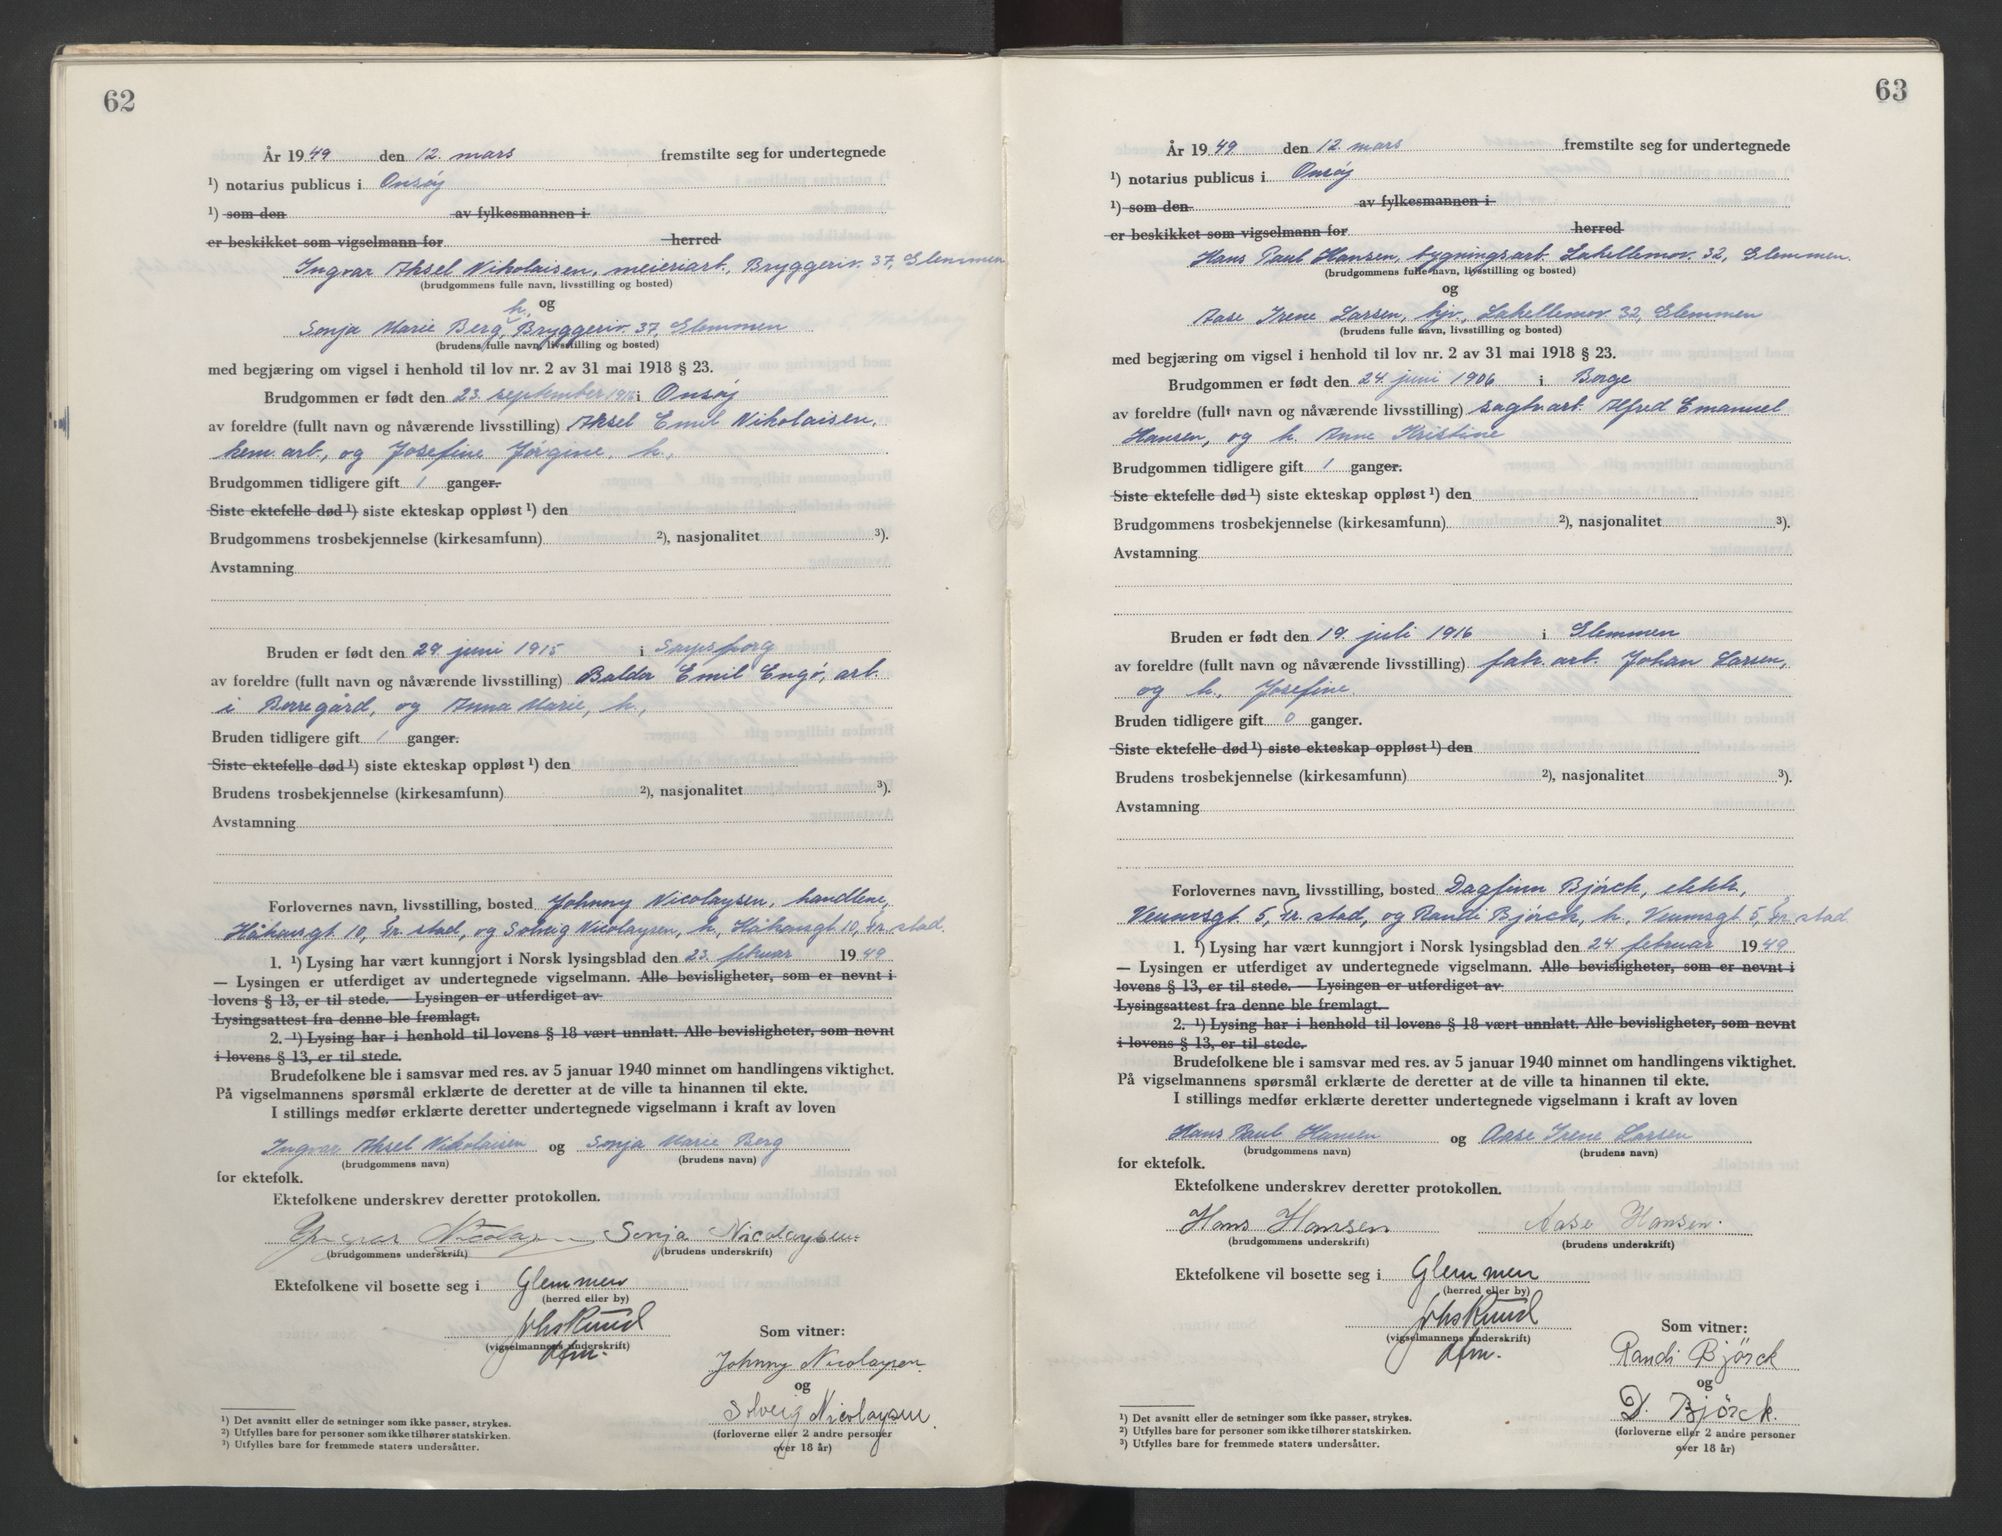 62
År 1949 den 12. mars fremstilte seg for undertegnede
¹) notarius publicus i Onsøy
¹) som den av fylkesmannen i
er beskikket som vigselmann for herred
Ingvar Aksel Nikolaisen, meieriarb., Bryggeriv. 37, Glemmen
(brudgommens fulle navn, livsstilling og bosted)
og
h.
Sonja Marie Berg, Bryggeriv. 37, Glemmen
(brudens fulle navn, livsstilling og bosted)
med begjæring om vigsel i henhold til lov nr. 2 av 31 mai 1918 § 23.
Brudgommen er født den 23. september i Onsøy
av foreldre (fullt navn og nåværende livsstilling) Aksel Emil Nikolaisen,
kem. arb., og Josefine Jørgine, h.,
Brudgommen tidligere gift 1 ganger.
Siste ektefelle død ¹) siste ekteskap oppløst ¹) den
Brudgommens trosbekjennelse (kirkesamfunn) ²), nasjonalitet ³).
Avstamning
Bruden er født den 29 juni 1915 i Sarpsborg
av foreldre (fullt navn og nåværende livsstilling) Balder Emil Engø, arb.
i Borregård, og Anna Marie, h.,
Bruden tidligere gift 1 ganger.
Siste ektefelle død ¹) siste ekteskap oppløst ¹) den
Brudens trosbekjennelse (kirkesamfunn) ²), nasjonalitet ³).
Avstamning
Forlovernes navn, livsstilling, bosted Johnny Nicolaysen, handlene,
Håkonsgt 10, Fr.stad, og Solveig Nicolaysen, h., Håkonsgt. 10, Fr.stad.
1. ¹) Lysing har vært kunngjort i Norsk lysingsblad den 23. februar 1949
— Lysingen er utferdiget av undertegnede vigselmann. Alle bevisligheter, som er nevnt i
lovens § 13, er til stede. — Lysingen er utferdiget av
Lysingsattest fra denne ble fremlagt.
2. ¹) Lysing har i henhold til lovens § 18 vært unnlatt. Alle bevisligheter, som nevnt
i lovens § 13, er til stede.
Brudefolkene ble i samsvar med res. av 5 januar 1940 minnet om handlingens viktighet.
På vigselmannens spørsmål erklærte de deretter at de ville ta hinannen til ekte.
I stillings medfør erklærte deretter undertegnede vigselmann i kraft av loven
Ingvar Aksel Nikolaisen og Sonja Marie Berg
(brudgommens navn) (brudens navn)
for ektefolk.
Ektefolkene underskrev deretter protokollen.
Yngvar Nicolaysen Sonja Nicolaysen
(brudgommens underskrift) (brudens underskrift)
Ektefolkene vil bosette seg i Glemmen
(herred eller by)
Johs Ruud
(vigselmannens underskrift)
dfm.
Som vitner:
Johnny Nicolaysen
og
Solveig Nicolaysen.
(forloverne eller 2 andre personer
over 18 år)
¹) Det avsnitt eller de setninger som ikke passer, strykes.
²) Utfylles bare for personer som ikke tilhører statskirken.
³) Utfylles bare for fremmede staters undersåtter.
63
År 1949 den 12. mars fremstilte seg for undertegnede
¹) notarius publicus i Onsøy
¹) som den av fylkesmannen i
er beskikket som vigselmann for herred
Hans Paul Hansen, bygningsarb. Lahellemov. 32, Glemmen.
(brudgommens fulle navn, livsstilling og bosted)
og
Aase Irene Larsen, hjv., Lahellemov 32, Glemmen
(brudens fulle navn, livsstilling og bosted)
med begjæring om vigsel i henhold til lov nr. 2 av 31 mai 1918 § 23.
Brudgommen er født den 24. juni 1906 i Borge
av foreldre (fullt navn og nåværende livsstilling) sagbr.arb. Alfred Emanuel
Hansen, og h. Anne Kristine
Brudgommen tidligere gift 1 ganger.
Siste ektefelle død ¹) siste ekteskap oppløst ¹) den
Brudgommens trosbekjennelse (kirkesamfunn) ²), nasjonalitet ³).
Avstamning
Bruden er født den 19. juli 1916 i Glemmen
av foreldre (fullt navn og nåværende livsstilling) fabr. arb. Johan Larsen,
og h., Josefine
Bruden tidligere gift 0 ganger.
Siste ektefelle død ¹) siste ekteskap oppløst ¹) den
Brudens trosbekjennelse (kirkesamfunn) ²), nasjonalitet ³).
Avstamning
Forlovernes navn, livsstilling, bosted Dagfinn Bjørck, elektr.,
Veumsgt 5, Fr.stad, og Randi Bjørck, h., Veumsgt 5, Fr.stad
1. ¹) Lysing har vært kunngjort i Norsk lysingsblad den 24 februar 1949
— Lysingen er utferdiget av undertegnede vigselmann. Alle bevisligheter, som er nevnt i
lovens § 13, er til stede. — Lysingen er utferdiget av
Lysingsattest fra denne ble fremlagt.
2. ¹) Lysing har i henhold til lovens § 18 vært unnlatt. Alle bevisligheter, som nevnt
i lovens § 13, er til stede.
Brudefolkene ble i samsvar med res. av 5 januar 1940 minnet om handlingens viktighet.
På vigselmannens spørsmål erklærte de deretter at de ville ta hinannen til ekte.
I stillings medfør erklærte deretter undertegnede vigselmann i kraft av loven
Hans Paul Hansen og Aase Irene Larsen
(brudgommens navn) (brudens navn)
for ektefolk.
Ektefolkene underskrev deretter protokollen.
Hans Hansen Aase Hansen.
(brudgommens underskrift) (brudens underskrift)
Ektefolkene vil bosette seg i Glemmen
(herred eller by)
Johs Ruud
(vigselmannens underskrift)
dfm.
Som vitner:
Randi Bjørck
og
D. Bjørck.
(forloverne eller 2 andre personer
over 18 år)
¹) Det avsnitt eller de setninger som ikke passer, strykes.
²) Utfylles bare for personer som ikke tilhører statskirken.
³) Utfylles bare for fremmede staters undersåtter.